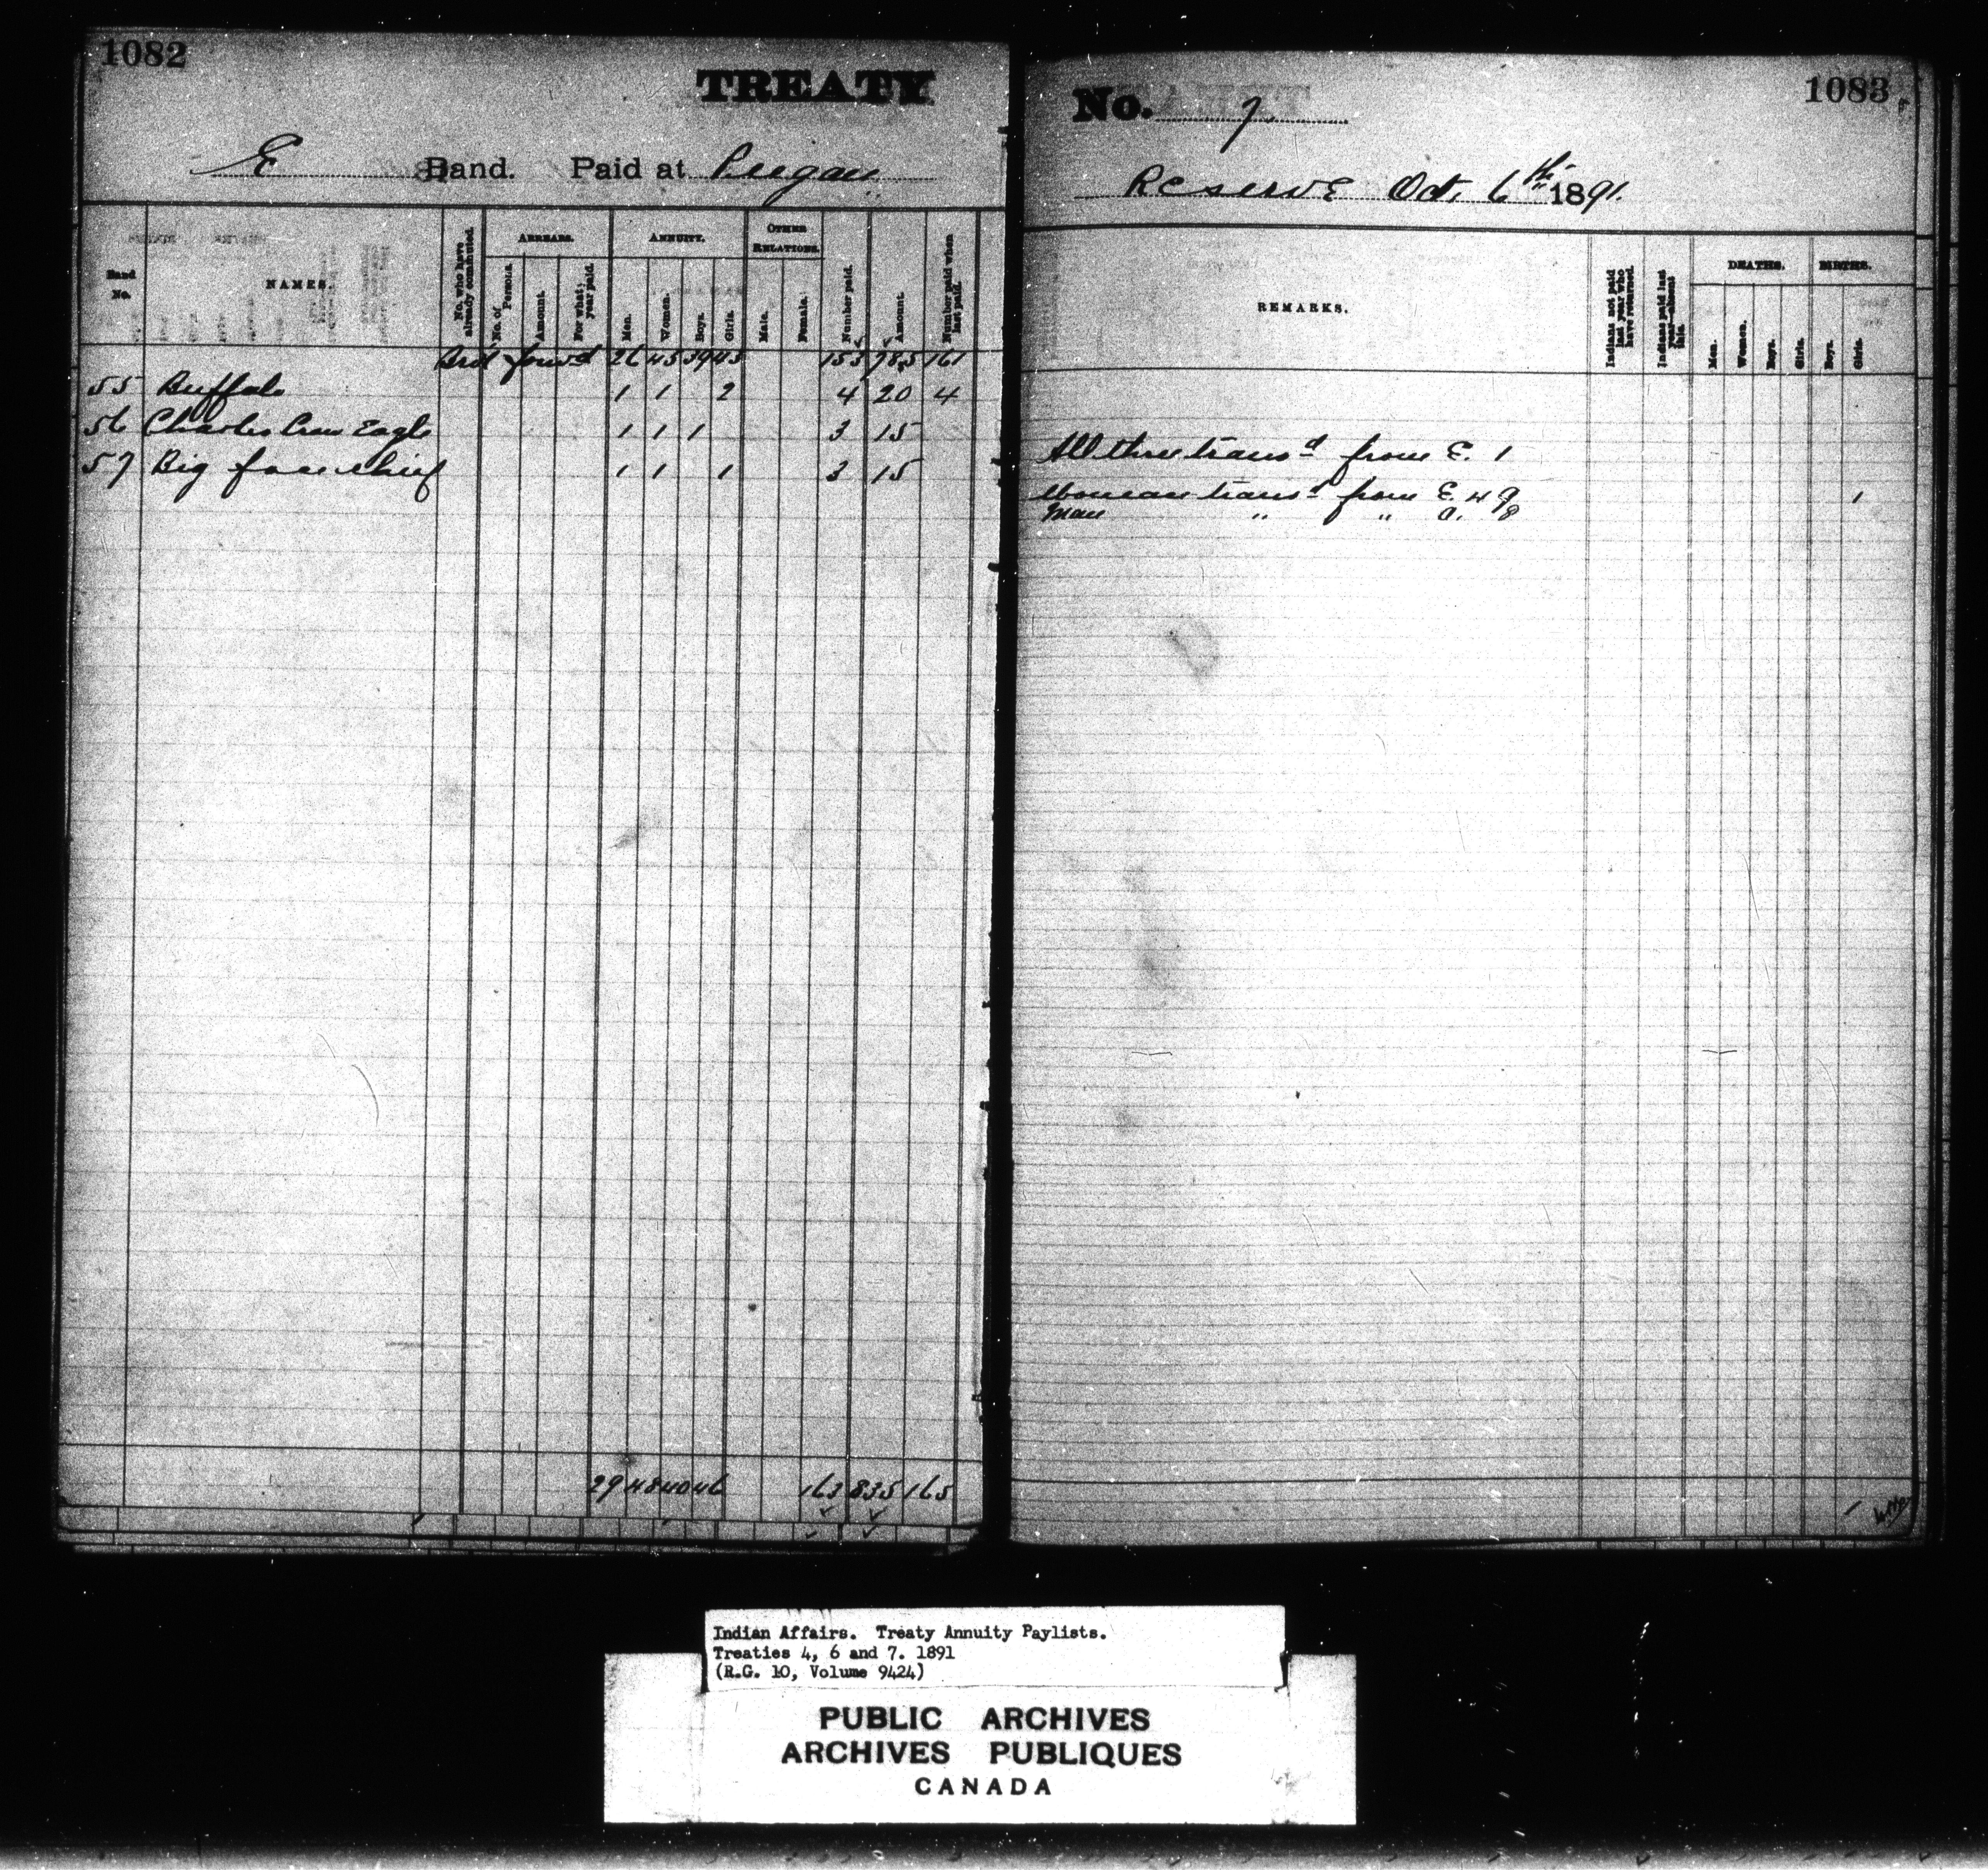 1082
TREATY
E Band. Paid at Piegan
Band No.
NAMES.
No. who have already commuted.
ARREARS.
No. of Persons.
Amount.
For what year paid.
ANNUITY.
Men.
Women.
Boys.
Girls.
OTHER RELATIONS.
Male.
Female.
Number paid.
Amount.
Number paid when last paid.
Brd forwd 26 45 39 43 153 785 161
55 Buffalo 1 1 2 4 20 4
56 Charles Crow Eagle 1 1 1 3 15
57 Big face chief 1 1 1 3 15
29 48 40 46 163 835 165
No. 7
1083
Reserve Oct. 6th 1891.
REMARKS.
Indians not paid last year who have returned.
Indians paid last year—absent this.
DEATHS.
Men.
Women.
Boys.
Girls.
BIRTHS.
Boys.
Girls.
All three transd from E. 1
Woman transd from E. 49 1
Man " " A. 8
1
Indian Affairs. Treaty Annuity Paylists.
Treaties 4, 6 and 7. 1891
(R.G. 10, Volume 9424)
PUBLIC ARCHIVES
ARCHIVES PUBLIQUES
CANADA